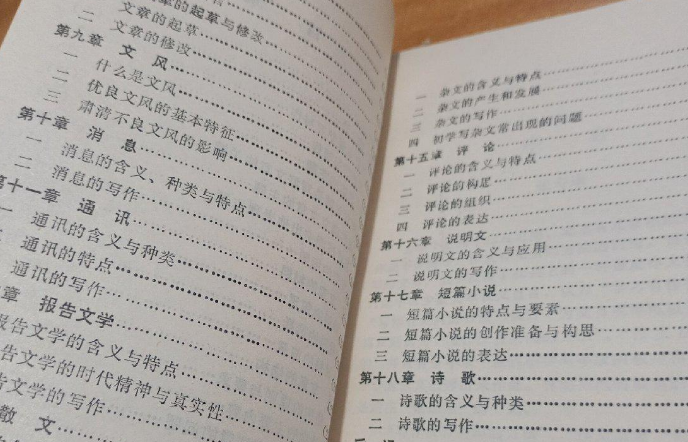 的起草与修改
二 文章的起草
文章的修改
第九章 文 风
一 什么是文风
二 优良文风的基本特征
三 肃清不良文风的影响
第十章 消 息
一 消息的含义、种类与特点
二 消息的写作
十一章 通 讯
一 通讯的含义与种类
通讯的特点
通讯的写作
章 报告文学
报告文学的含义与特点
告文学的时代精神与真实性
告文学的写作
散 文
一 杂文的含义与特点
二 杂文的产生和发展
三 杂文的写作
四 初学写杂文常出现的问题
第十五章 评 论
一 评论的含义与特点
二 评论的构成
三 评论的组织
四 评论的表达
第十六章 说明文
一 说明文的含义与应用
二 说明文的写作
第十七章 短篇小说
一 短篇小说的特点与要素
二 短篇小说的创作准备与构思
三 短篇小说的表达
第十八章 诗 歌
一 诗歌的含义与种类
二 诗歌的写作